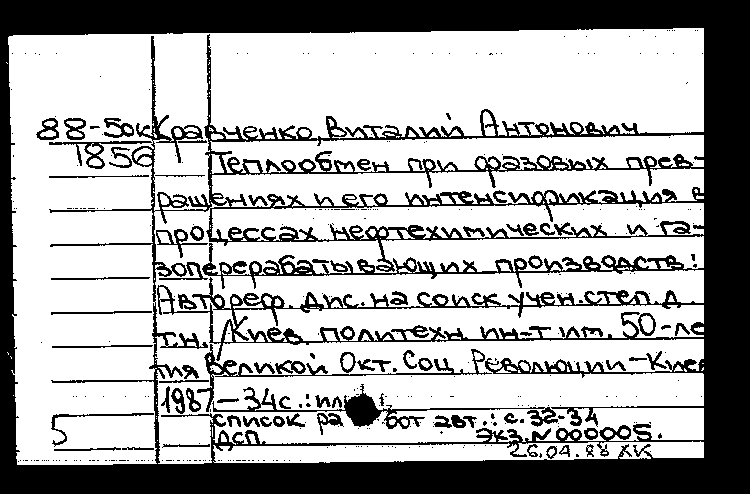 88-5ок Кравченко, Виталий Антонович
1856 Теплообмен при фазовых прев-
ращениях и его интенсификация в
процессах нефтехимических и га-
зоперерабатывающих производств:
Автореф. дис. на соиск. учен. степ. д.
т.н. / Киев. политехн. ин-т им. 50-ле
тия Великой Окт. Соц. Революции – Киев
1987 – 34с.: ил
список ра бот авт.: с. 32-34
5 ДСП. Экз. N 000005.
26.04.88 ХК